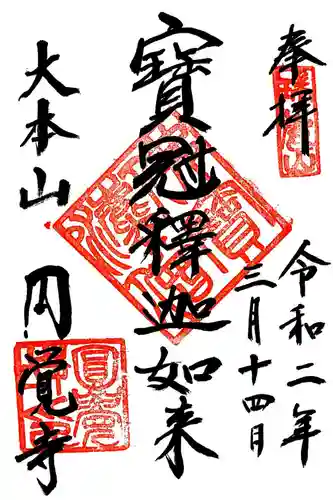 奉拝
令和二年
三月十四日
寶冠釋迦如来
大本山
円覚寺